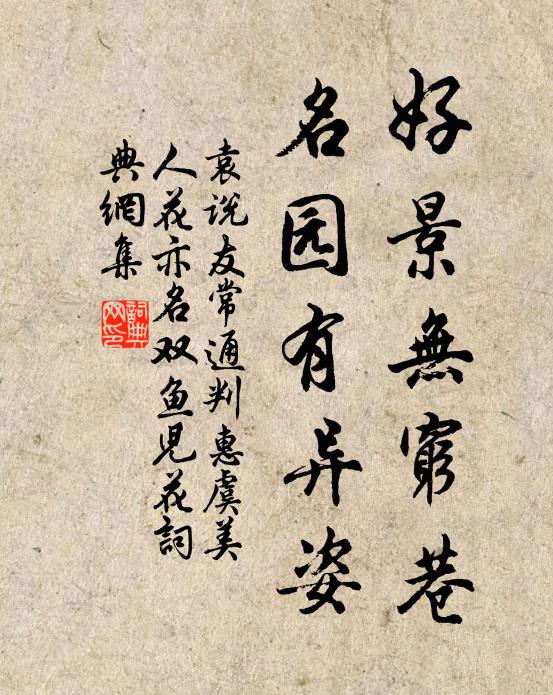 好景無窮巷
名园有异姿
袁说友常通判惠虞美
人花亦名双鱼児花詞
典網集
詞典网印